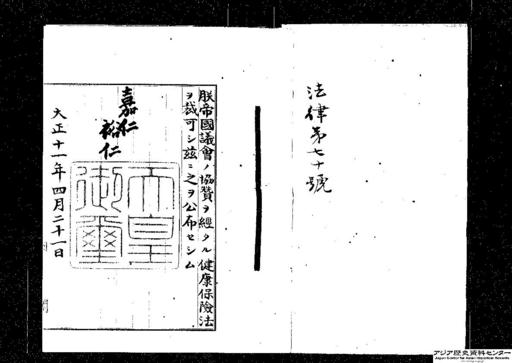 法律第七十號
朕帝國議會ノ協賛ヲ經タル健康保險法
ヲ裁可シ茲ニ之ヲ公布セシム
嘉仁
裕仁
天皇
御璽
大正十一年四月二十一日
アジア歴史資料センター
Japan Center for Asian Historical Records